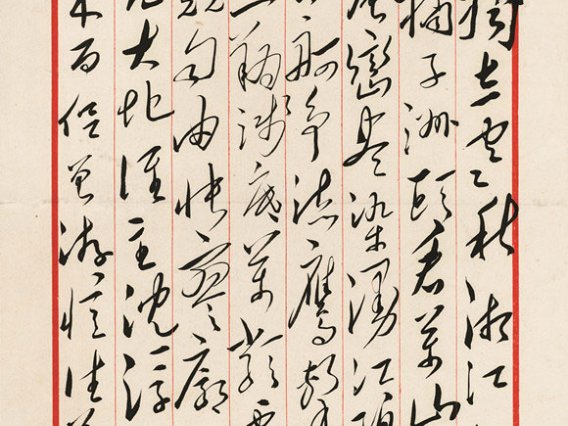 獨立寒秋湘江
橘子洲頭看萬山
層巒盡染漫江
舸爭流鷹擊
翔淺底萬類霜
競自由悵寥廓
大地誰主沈浮
來百侶曾游憶往